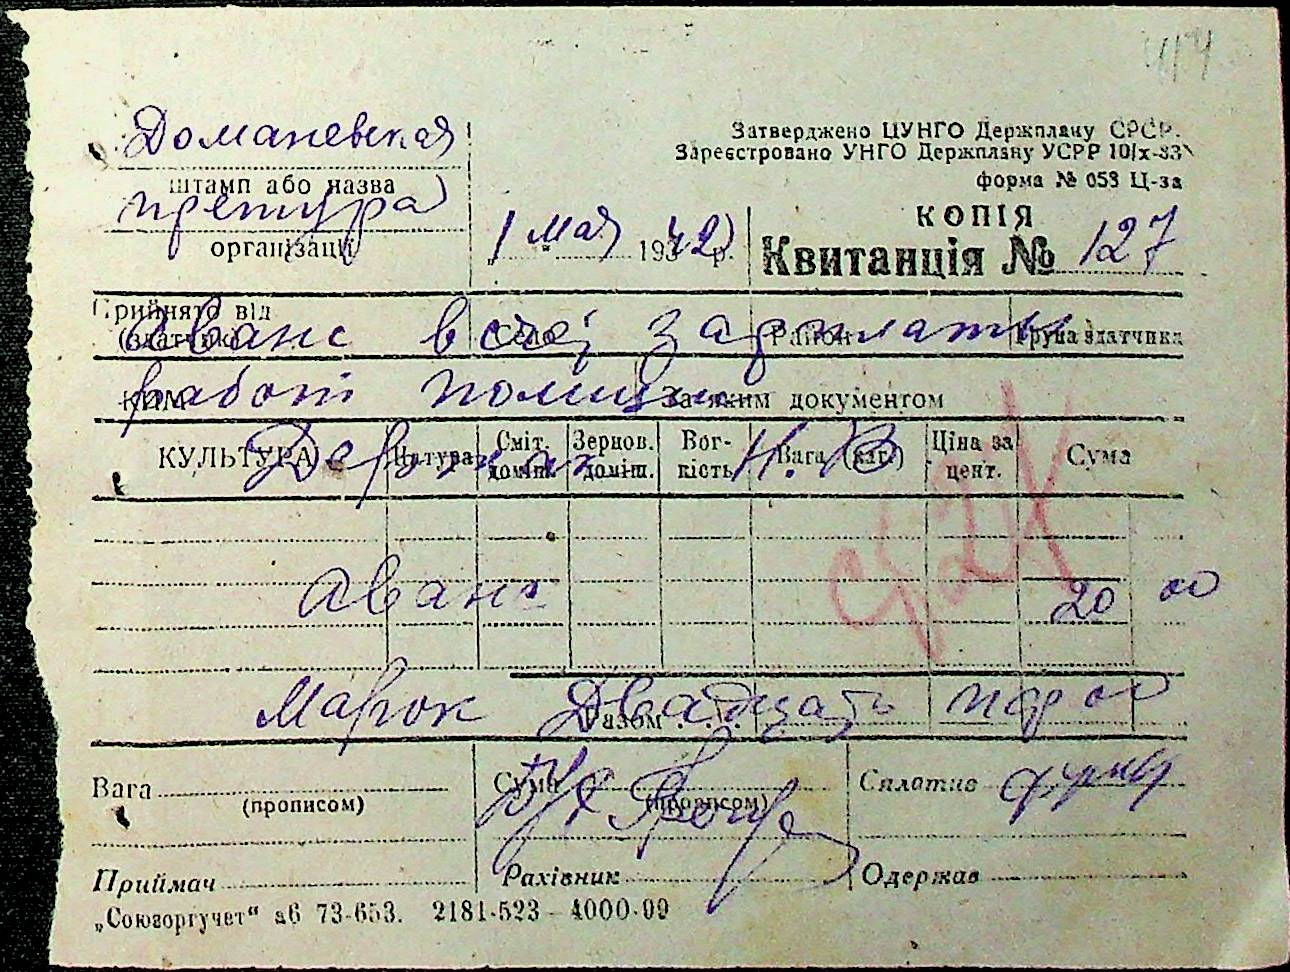 414
Доманевская
штамп або назва
претура
організації
1 мая 1942 р.
Затверджено ЦУНГО Держплану СРСР.
Зареєстровано УНГО Держплану УСРР 10/х-33
форма № 053 Ц-за
КОПІЯ
Квитанція № 127
Прийнято від
(здатчик) Село Район Група здатчика
Аванс в счот зарплаты
ким За яким документом
работ полиции
КУЛЬТУРА Натура Сміт. доміш. Зернов. доміш. Вог-кість Вага (кг.) Ціна за цент. Сума
Н. В
Аванс 20 00
Разом
Марок Двадцать пф 00
Вага (прописом) Сума (прописом) Сплатив
Бух
Приймач Рахівник Одержав
„Союзоргучет“ аб 73-653. 2181-523 - 4000-09